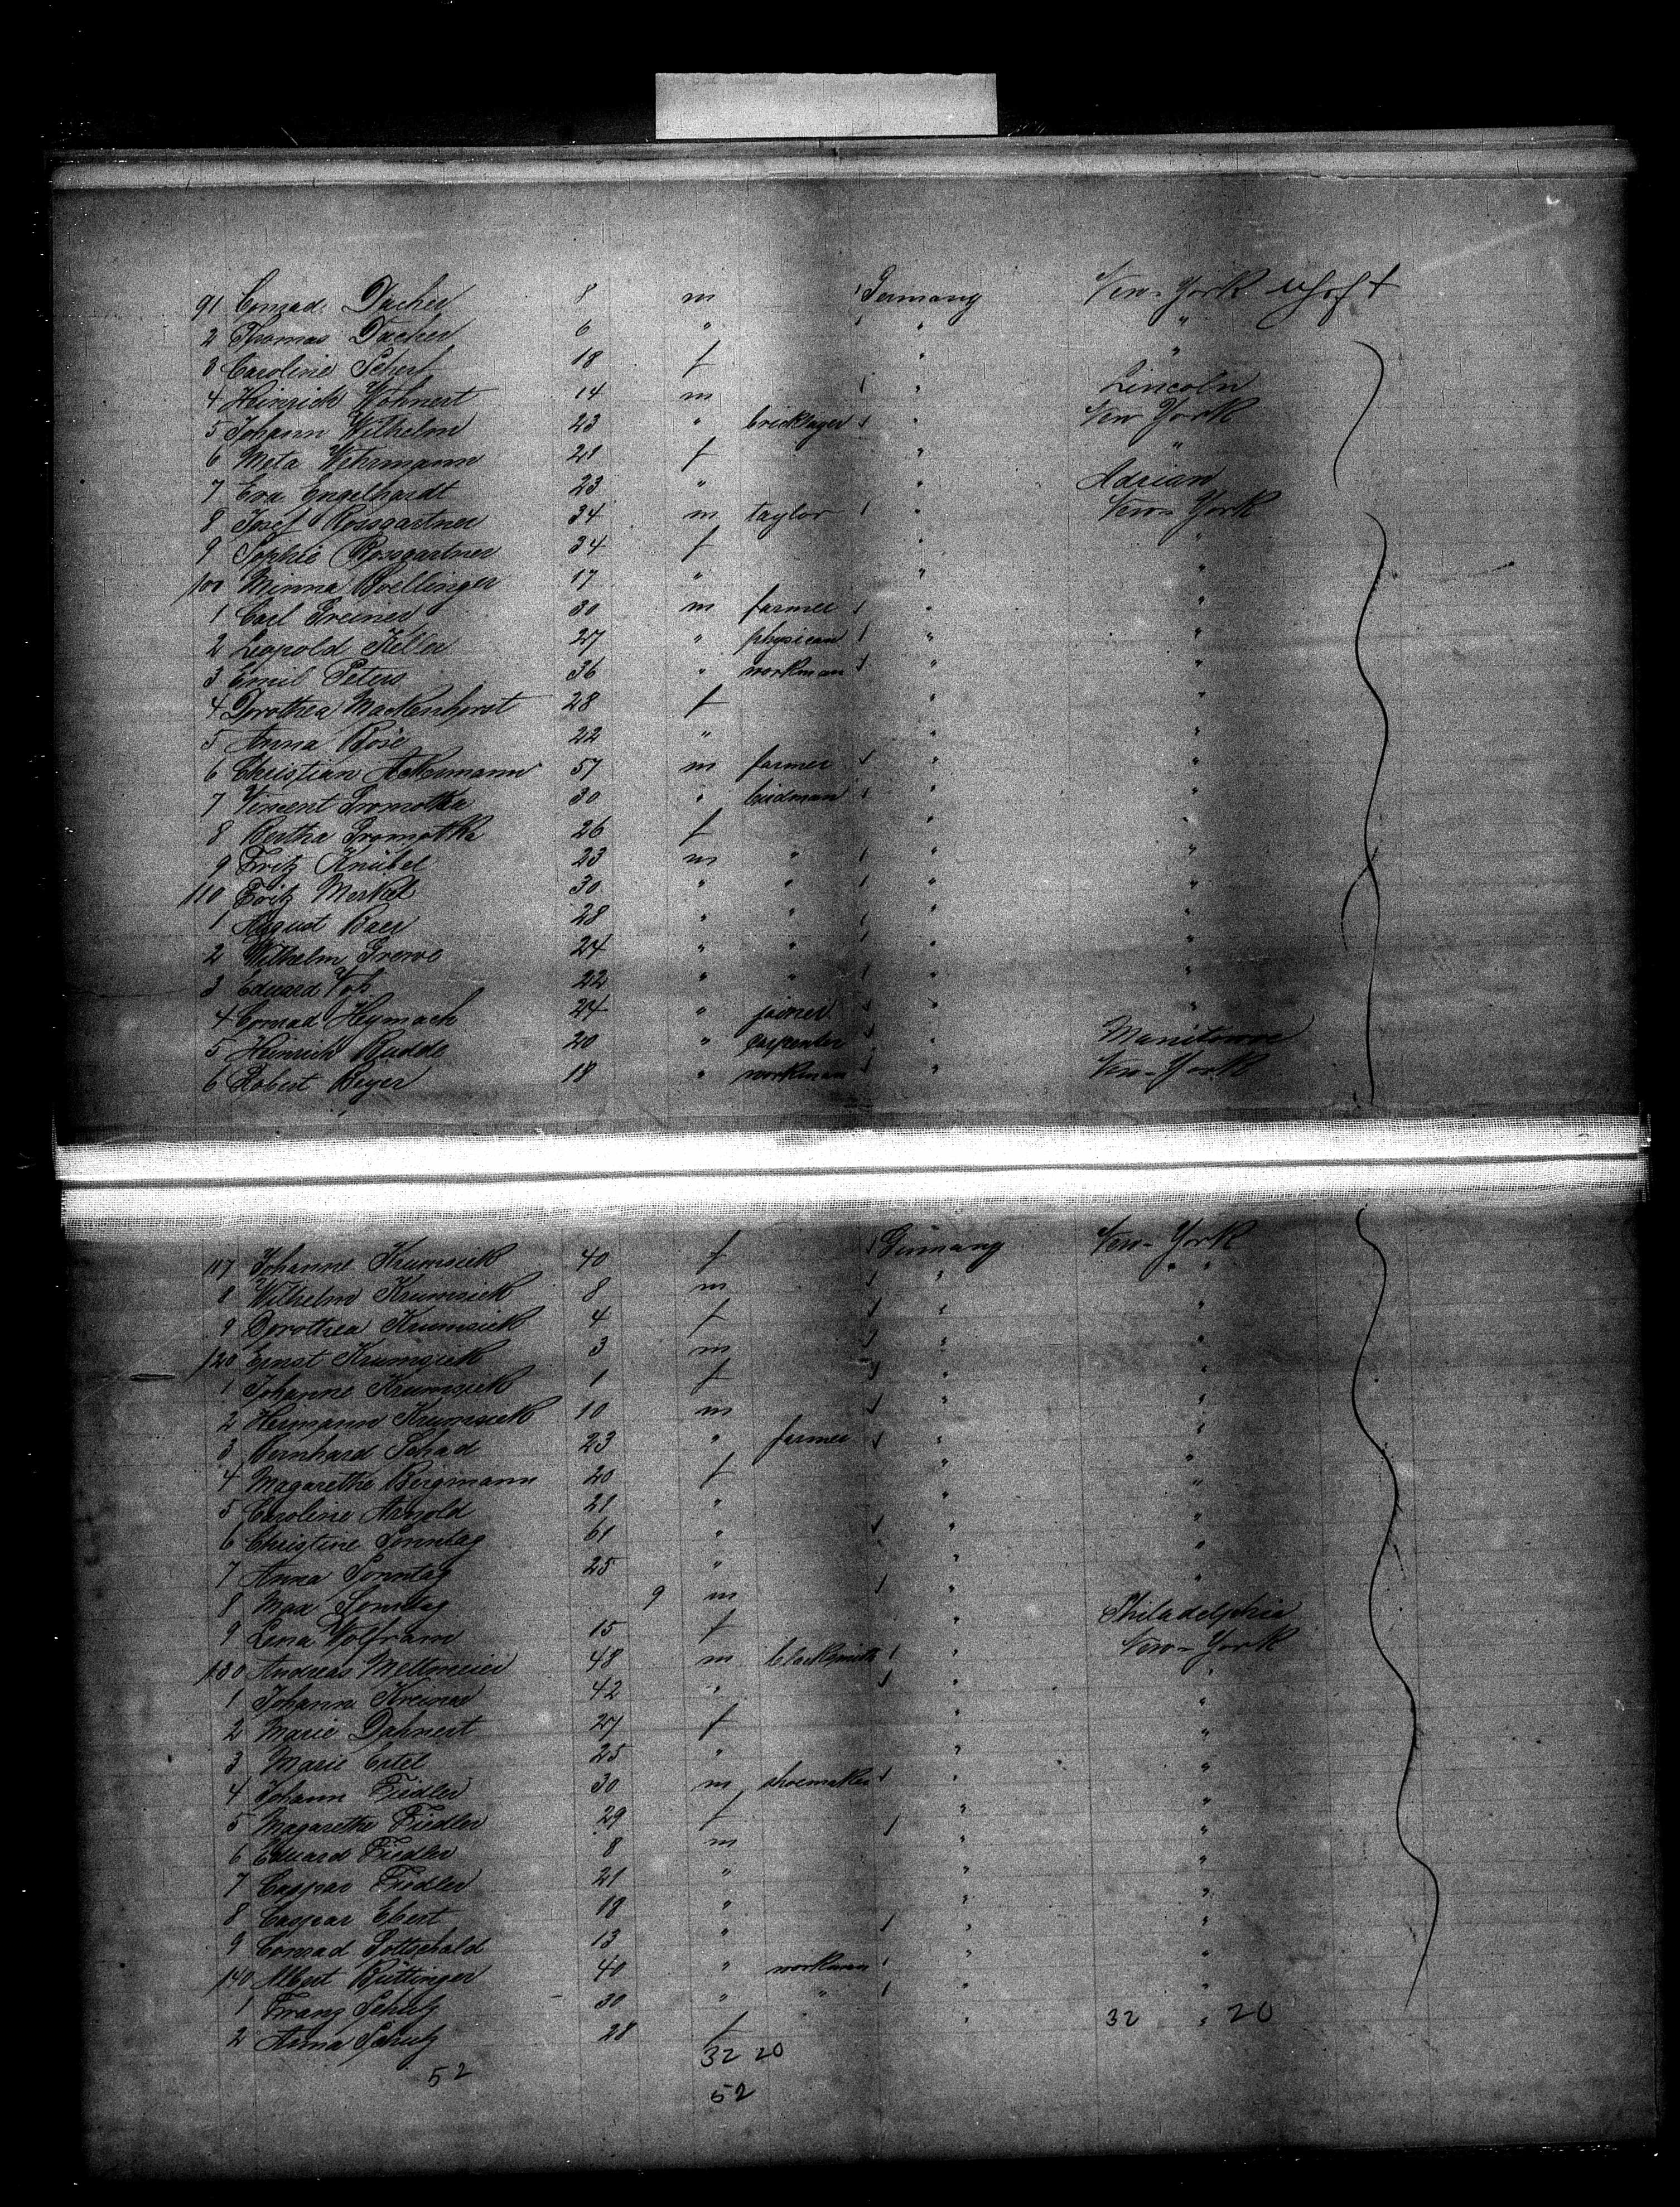 91 Conrad Dacher 8 m Germany New-York
2 Thomas Dacher 6 " " "
3 Caroline Scherf 18 f " "
4 Heinrich Wohnert 14 m " Lincoln
5 Johann Wilhelm 23 " bricklayer " New York
6 Meta Wehrmann 21 f " "
7 Eva Engelhardt 23 " " Adrian
8 Josef Rossgartner 34 m taylor " New-York
9 Sophie Rossgartner 34 f " "
100 Minna Bollinger 17 " " "
1 Carl Greiner 30 m farmer " "
2 Leopold Keller 27 " physican " "
3 Emil Peters 36 " workman " "
4 Dorothea Mackenhorst 28 f " "
5 Anna Rose 22 " " "
6 Christian Ackermann 57 m farmer " "
7 Vincent Gromotka 30 " " "
8 Bertha Gromotka 26 f " "
9 Fritz Knübel 23 m " " "
110 Fritz Merkel 30 " " " "
1 August Baer 28 " " " "
2 Wilhelm Grewe 24 " " " "
3 Eduard 22 " " " "
4 Conrad Heymach 24 " joiner " "
5 Heinrich Budde 20 " carpenter " Manitowoc
6 Robert Beyer 18 " workman " New-York
117 Johanne Krumsiek 40 f Germany New-York
8 Wilhelm Krumsiek 8 m " " "
9 Dorothea Krumsiek 4 f " "
120 Ernst Krumsiek 3 m " "
1 Johanne Krumsiek 1 f " "
2 Hermann Krumsiek 10 m " "
3 Bernhard Schad 23 " farmer " "
4 Magarethe Bergmann 20 f " "
5 Caroline Arnold 21 " " "
6 Christine Sonntag 61 " " "
7 Anna Sonntag 25 " " "
8 Max Sonntag 9 m " "
9 Lena Wolfram 15 f " Philadelphia
130 Andreas Meltmeier 48 m blacksmith " New-York
1 Johann Kreiner 42 " " "
2 Marie Dahnert 27 f " "
3 Marie Ertel 25 " " "
4 Johann Fiedler 30 m shoemaker " "
5 Magarethe Fiedler 29 f " "
6 Eduard Fiedler 8 m " "
7 Caspar Fiedler 21 " " "
8 Caspar Ebert 19 " " "
9 Conrad Gottschald 13 " " "
140 Albert Rüttinger 40 " workman " "
1 Franz Schulz 30 " " " "
2 Anna Schulz 28 f " 32 " 20
52 32 20
52